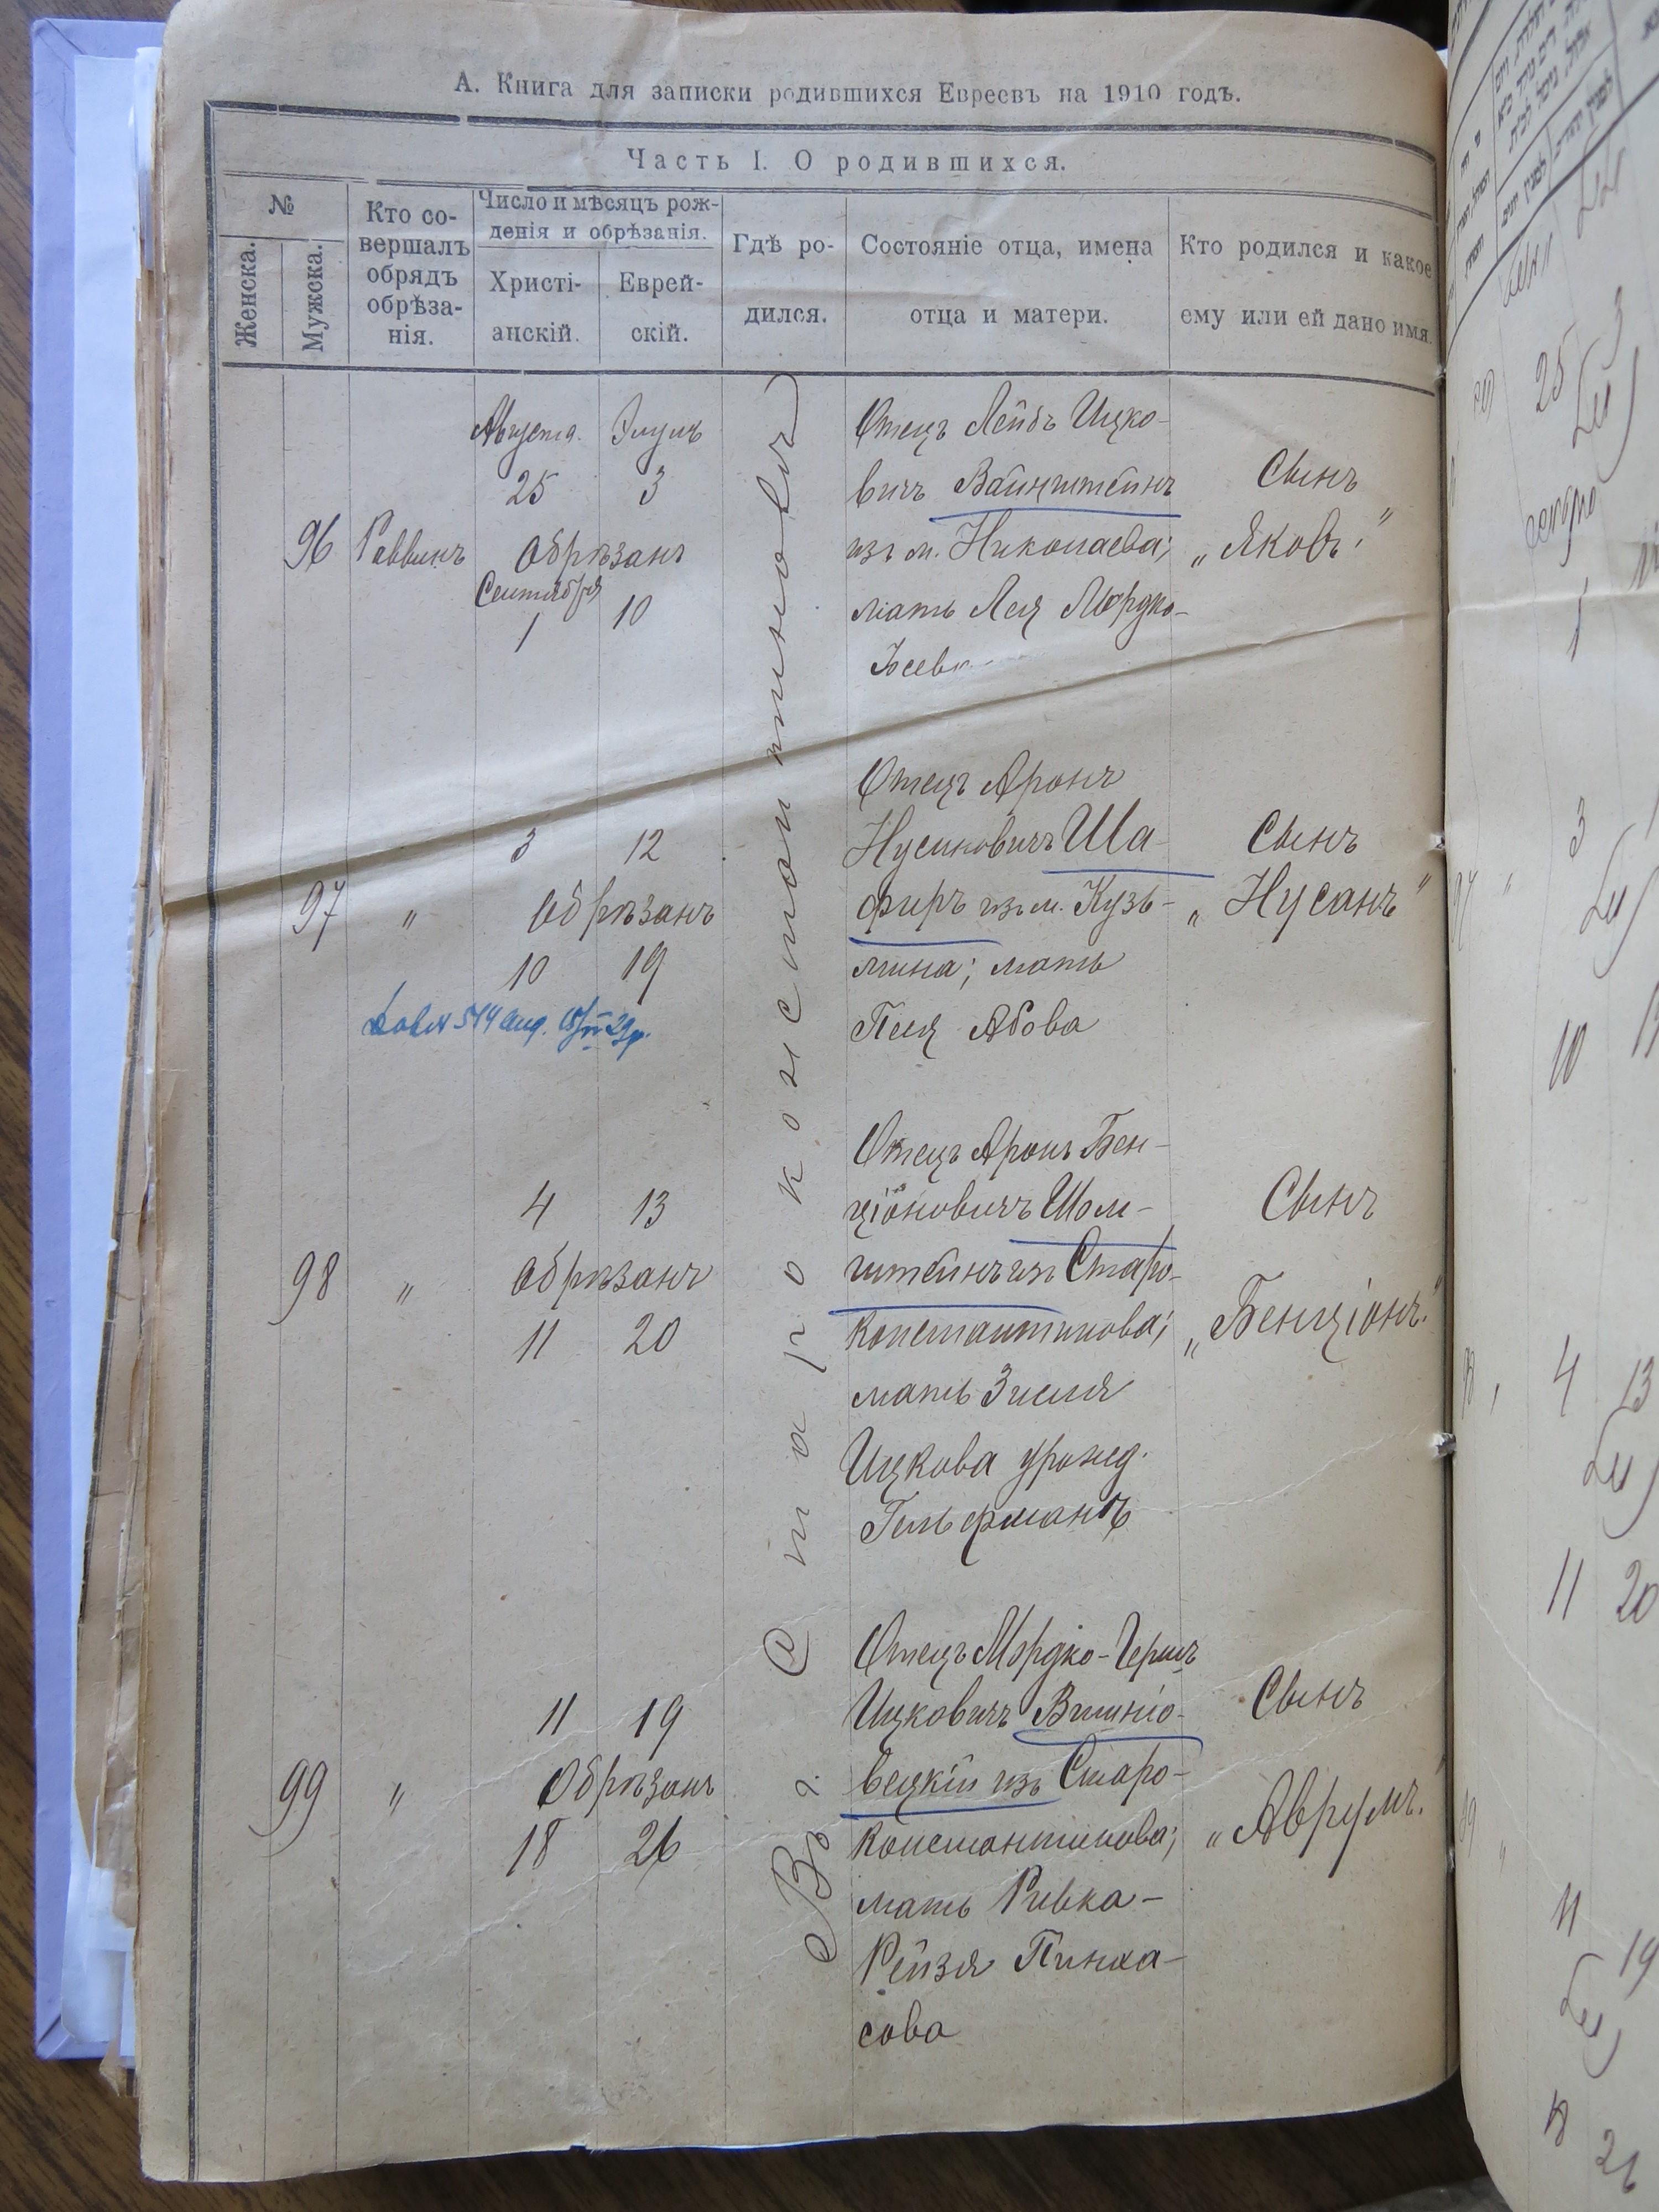 А. Книга для записки родившихся Евреевъ на 1910 годъ.
Часть I. О родившихся.
№
Женска.
Мужска.
Кто со-
вершалъ
обрядъ
обрѣза-
нія.
Число и мѣсяцъ рож-
денія и обрѣзанія.
Христі-
анскій.
Еврей-
скій.
Гдѣ ро-
дился.
Состояніе отца, имена
отца и матери.
Кто родился и какое
ему или ей дано имя.
Въ г. Староконстантиновѣ
96
Раввинъ
Августа. Элулъ
25 3
Обрѣзанъ
Сентября
1 10
Отецъ Лейбъ Ицко-
вичъ Вайнштейнъ
изъ м. Николаева;
мать Лея Мордко-
Іосева
Сынъ
„Яковъ."
97
"
3 12
Обрѣзанъ
10 19
Отецъ Аронъ
Нусиновичъ Ша-
фиръ изъ м. Кузь-
мина; мать
Песя Абова
Сынъ
„Нусанъ"
98
"
4 13
Обрѣзанъ
11 20
Отецъ Аронъ Бен-
ціоновичъ Шом-
штейнъ изъ Старо-
константинова;
мать Зисля
Ицкова урожд.
Гельфманъ
Сынъ
„Бенціонъ."
99
"
11 19
Обрѣзанъ
18 26
Отецъ Мордко-Гершъ
Ицковичъ Вишніо-
вецкій изъ Старо-
константинова;
мать Ривка-
Рейзя Пинха-
сова
Сынъ
„Аврумъ."
25 3
1
3
10
4 13
11 20
11 19
18 26